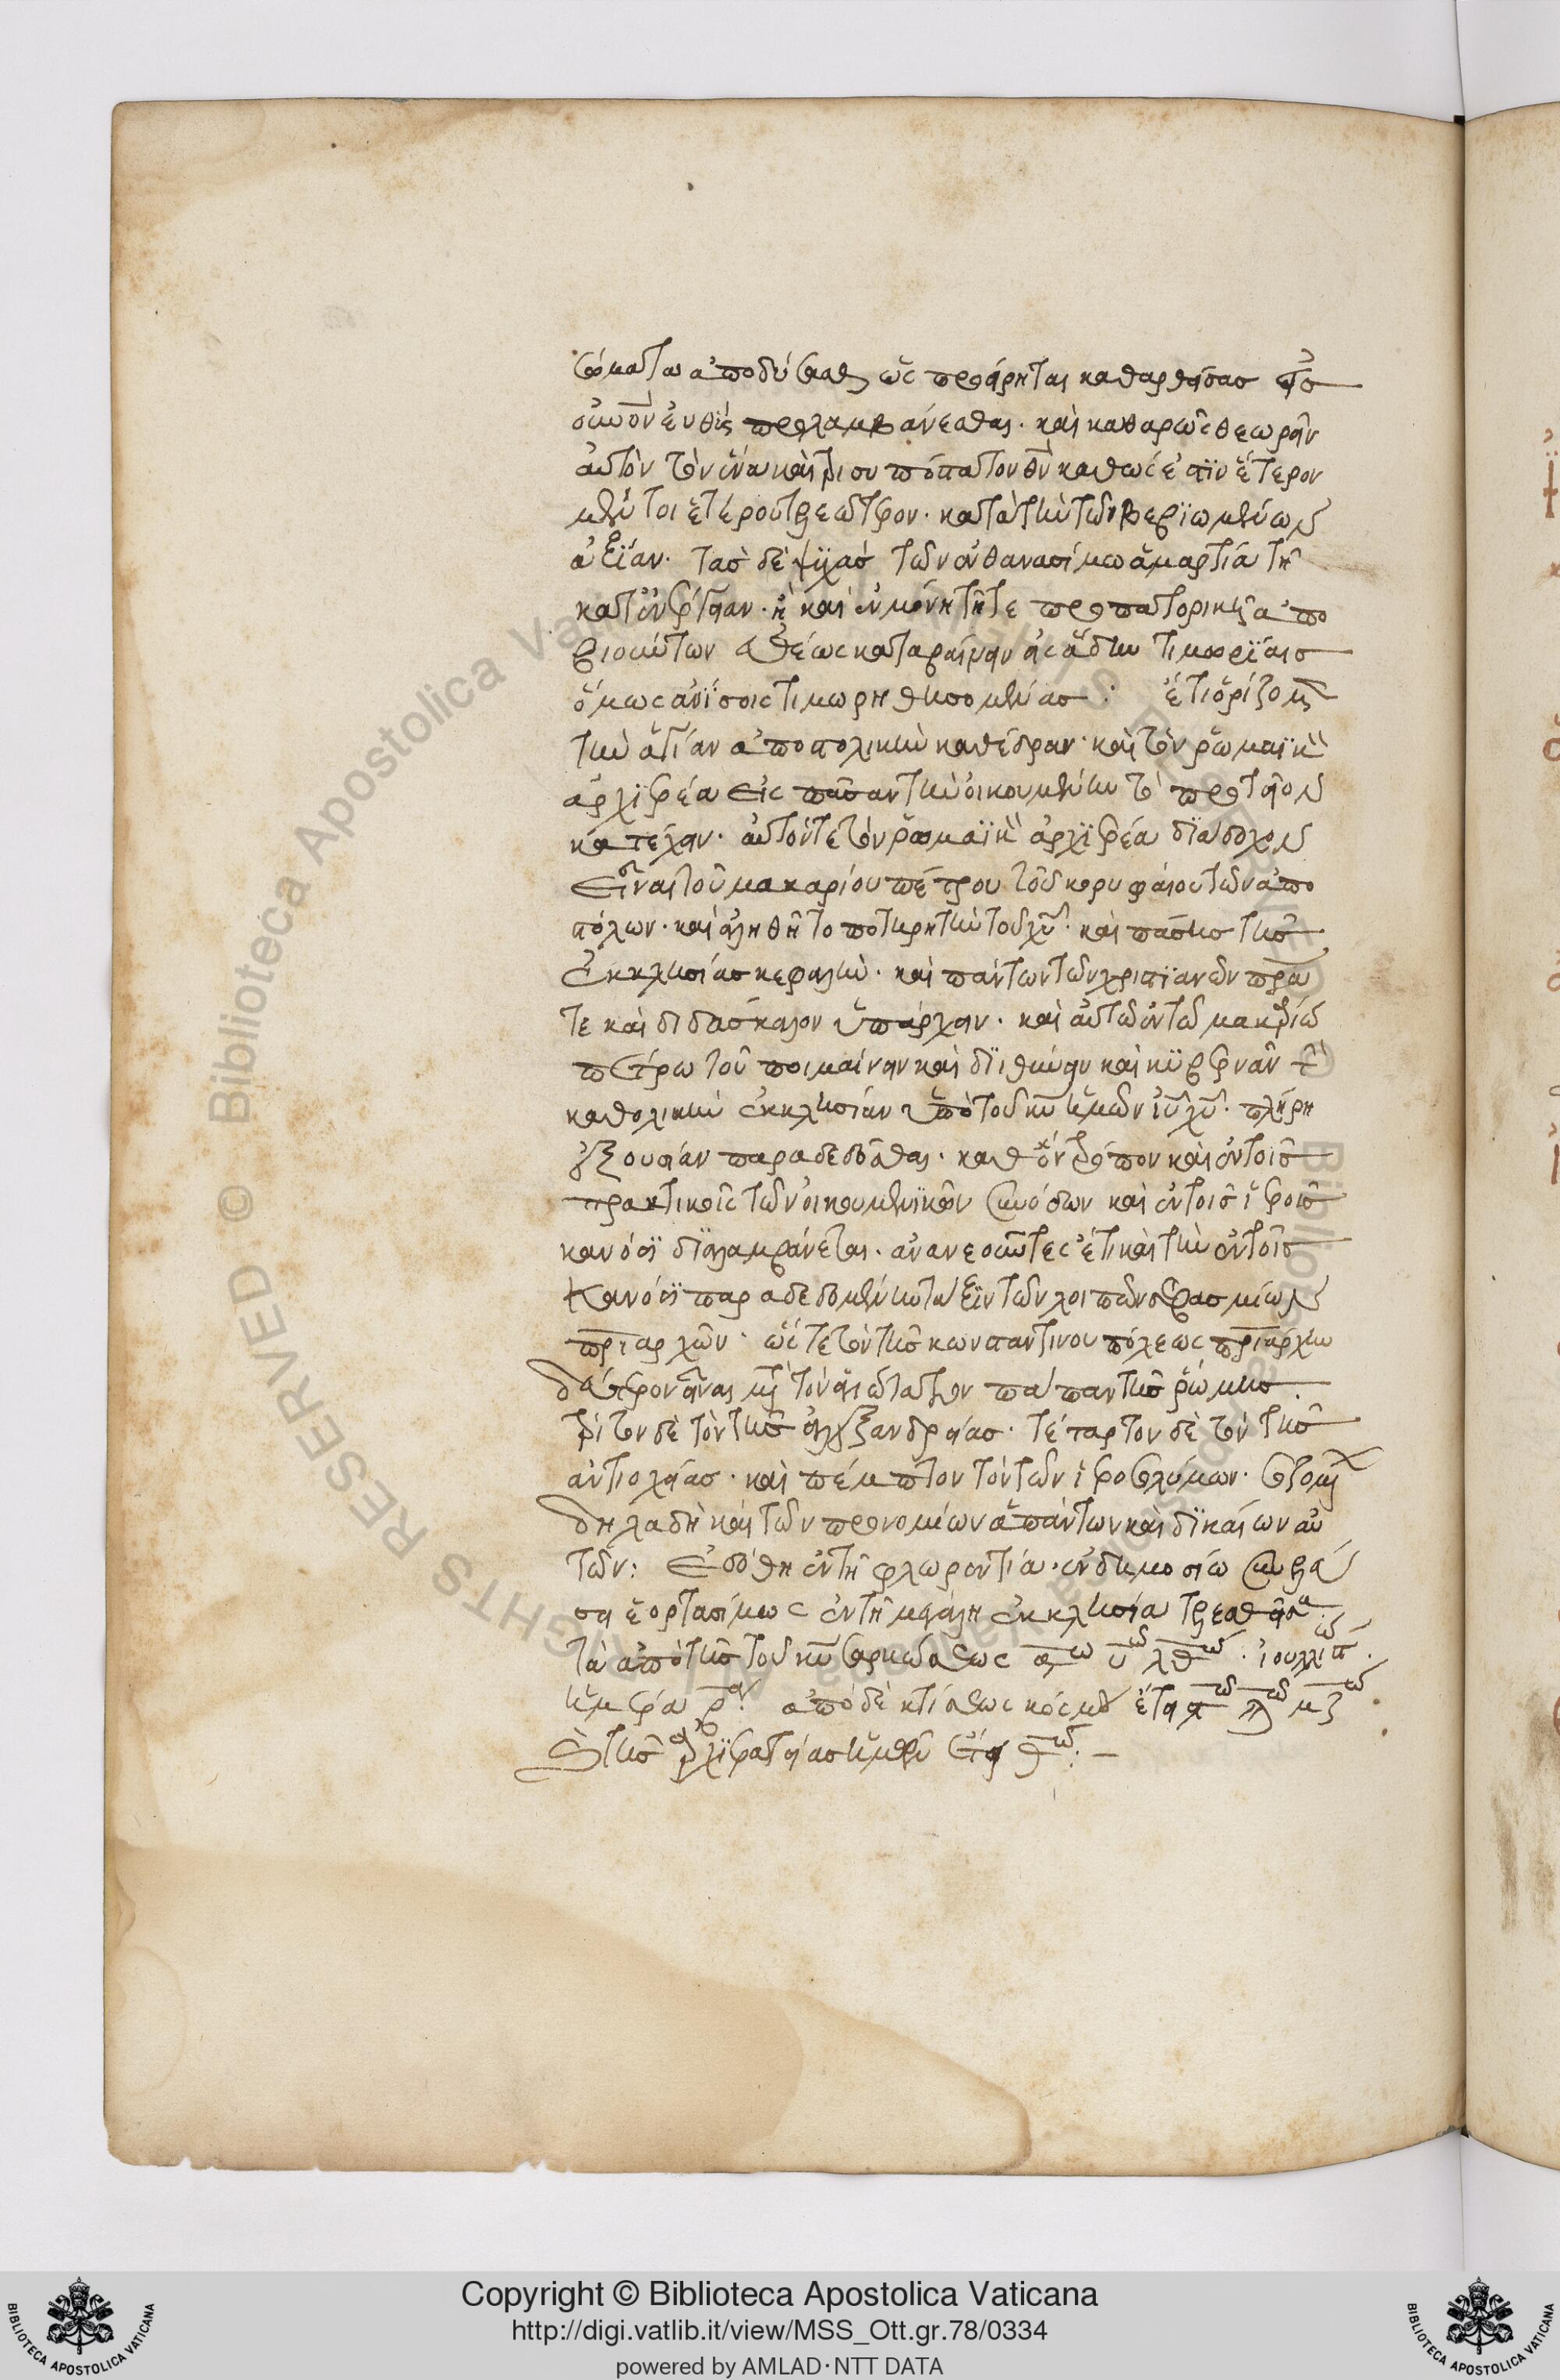 σώματα ἀποδύσασαι ὡς προείρηται καθαρθείσας εἰς
οὐρανὸν εὐθὺς προσλαμβάνεσθαι. καὶ καθαρῶς θεωρεῖν
αὐτὸν τὸν ἕνα καὶ τρισυπόστατον θν καθώς ἐστϊν ἕτερον
μέντοι ἑτέρου τελεώτερον. κατὰ τὴν τῶν βεβϊωμένων
ἀξΐαν. τὰσ δὲ ψϋχὰσ τῶν ἐν θανασίμω ἁμαρτία τῆ
κατ ἐνέργειαν. ἢ καὶ ἐν μόνη τῆ τε προπατορικῆ ἀπο
βιούντων εὐθέως καταβαίνειν εἰς ἅδην τιμωρΐαισ
ὅμως ἀνΐσοις τιμωρηθησομένασ: ἔτι ὁρίζομεν
τὴν ἁγίαν ἀποστολικὴν καθέδραν. καὶ τὸν ῥωμαϊκὸν
ἀρχϊερέα εἰς πᾶσαν τὴν οἰκουμένην τὸ πρωτεῖον
κατέχειν. αὐτόν τε τὸν ῥωμαϊκὸν ἀρχϊερέα δϊάδοχον
εἶναι τοῦ μακαρίου πέτρου τοῦ κορυφαίου τῶν ἀπο
στόλων. καὶ ἀληθῆ τοποτηρητὴν τοῦ χυ. καὶ πάσησ τῆσ
ἐκκλησίασ κεφαλὴν. καὶ πάντων τῶν χριστϊανῶν πρα
τε καὶ διδάσκαλον ὑπάρχειν. καὶ αὐτῶ ἐν τῶ μακαρίω
πέτρω τοῦ ποιμαίνειν καὶ δϊιθύνειν καὶ κϋβερνᾶν τὴν
καθολικὴν ἐκκλησίαν ὑπὸ τοῦ κυ ἡμῶν ιυ χυ. πλήρη
ἐξουσίαν παραδεδόσθαι. καθ ὃν τρόπον καὶ ἐν τοῖσ
πρακτικοῖς τῶν οἰκουμενϊκῶν συνόδων καὶ ἐν τοῖσ ἱεροῖσ
κανόσϊ δϊαλαμβάνεται. ἀνανεοῦντες ἔτι καὶ τὴν ἐν τοῖσ
κανόσϊ παραδεδομένην τάξϊν τῶν λοιπῶν σεβασμίων
πριαρχῶν. ὥστε τὸν τῆσ κωνσταντινουπόλεως πριάρχην
δεύτερον εἶναι μετὰ τὸν ἁγιώτατον πάπαν τῆσ ῥώμησ.
τρίτον δὲ τὸν τῆσ ἀλεξανδρείασ. τέταρτον δὲ τὸν τῆσ
ἀντιοχείασ. καὶ πέμπτον τὸν τῶν ἱεροσολύμων. σωζομένων
δηλαδὴ καὶ τῶν προνομίων ἁπάντων καὶ δϊκαίων αὐ
τῶν: ἐδόθη ἐν τῆ φλωρεντία. ἐν δημοσίω συνελεύ
σει ἑορτασίμως ἐν τῆ μεγάλη ἐκκλησία τελεσθείσα.
τῶ ἀπὸ τῆσ τοῦ κυ σαρκώσεως αω υω λθω. ἰουλλίω
ἡμέρα ἀπὸ δὲ κτίσεως κόσμου ἔτει
τῆσ ἀρχϊερατείασ ἡμῶν ἔτει θω:-